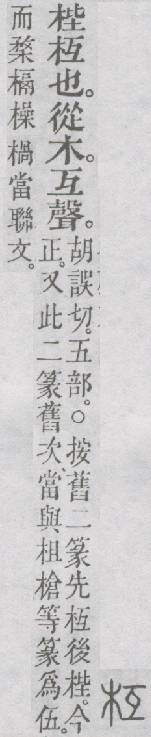 枑
梐枑也。從木。互聲。
胡誤切。五部。○按舊二篆先枑後梐。今
正。又此二篆舊次、當與柤槍等篆爲伍。
而楘槅橾楇當聯文。